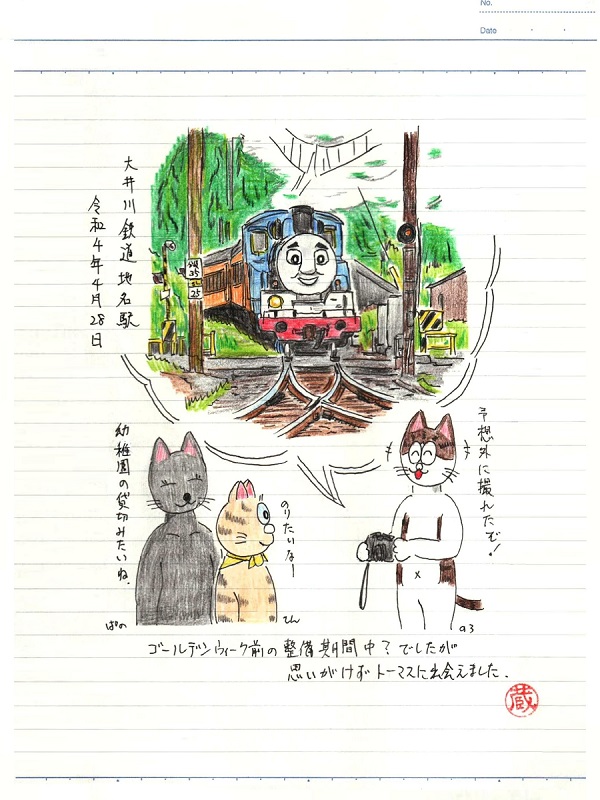 No.
Date
大井川鉄道地名駅
令和4年4月28日
25
予想外に撮れたで!
幼稚園の貸切みたいね.
のりたいなー
ぱの
てん
ゴールデンウィーク前の整備期間中?でしたが
思いがけずトーマスに出会えました.
蔵